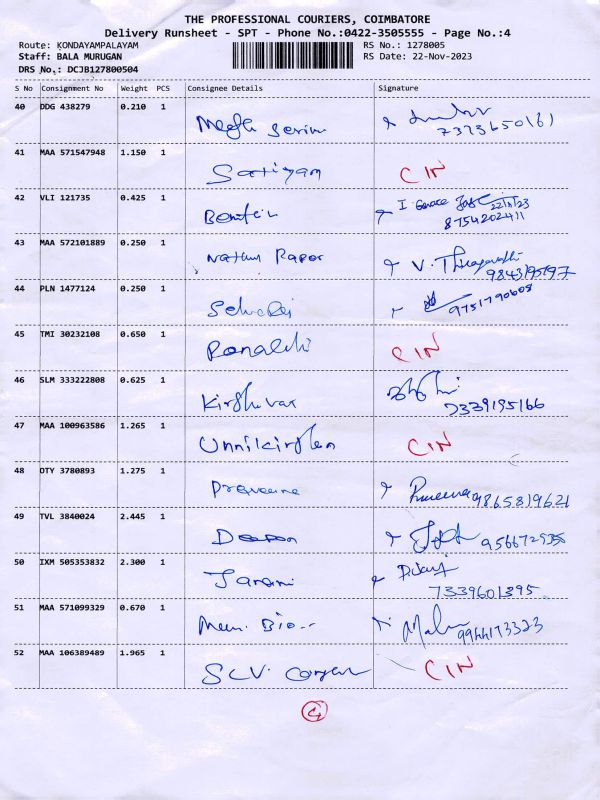 THE PROFESSIONAL COURIERS, COIMBATORE
Delivery Runsheet - SPT - Phone No.:0422-3505555 - Page No.:4
Route: KONDAYAMPALAYAM RS No.: 1278005
Staff: BALA MURUGAN RS Date: 22-Nov-2023
DRS No.: DCJB127800504
S No Consignment No Weight PCS Consignee Details Signature
40 DDG 438279 0.210 1
7373650161
41 MAA 571547948 1.150 1 Sathiyam CIN
42 VLI 121735 0.425 1
22/11/23
8754202411
43 MAA 572101889 0.250 1 V.
44 PLN 1477124 0.250 1
9751790605
45 TMI 30232108 0.650 1 CIN
46 SLM 333222808 0.625 1
7339195166
47 MAA 100963586 1.265 1 CIN
48 DTY 3780893 1.275 1 Praveena 9865819621
49 TVL 3840024 2.445 1
50 IXM 505353832 2.300 1
7339601395
51 MAA 571099329 0.670 1
9944173323
52 MAA 106389489 1.965 1 CIN